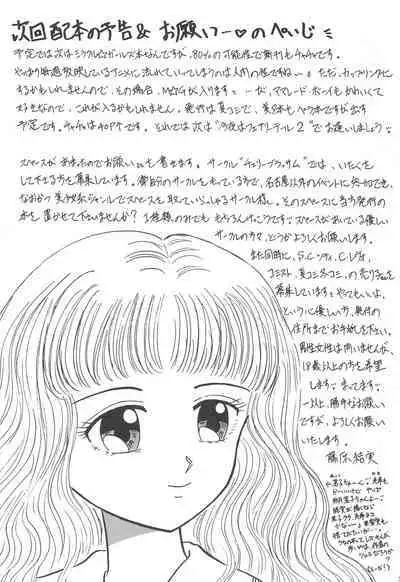 次回配本の予告& お願いー♡のぺいじ
予定では次はミラクル☆ガールズ本なんですが、80%の可能性で新刊もチャチャです。
やっぱり毎週放映しているアニメに流れていってしまうのは人間の性ですね〜。ただ、カップリングに
なるかもしれませんので、その場合、M&Gが入ります。一が、ママレード・ボーイもかわいくて
好きなので、これが入るかもしれません。発行は夏コミで、夏のあともペラ本ですが出す
予定です。チャチャは40Pです。それでは次は"今夜はフェアリーテール2"でお逢いしましょう。
スペースがあまったのでお願いを書きます。サークル"チェリーブラッサム"では、いたくを
して下さる方を募集しています。御自分のサークルをもっている方で、名古屋以外のイベントに参加でき、
なおかつ美少女系ジャンルでスペースを取っていらっしゃるサークル様。そのスペースに当方発行の
本を置かせて下さいませんか? 1種類のみでももちろんけっこうです。スペースが空いている優しい
サークルの方々、どうかよろしくお願いします。
また同時に、S.C.シティ、C.レヴォ、
コミスト、夏コミ、冬コミ、の売り子さんを
募集しています。やってもいいよ、
という心優しい方、奥付の
住所までお手紙を下さい。
男性女性は問いませんが、
18歳以上の方を希望
します。まってます。
一以上、勝手なお願い
ですが、よろしくお願い
いたします。
藤原 結実